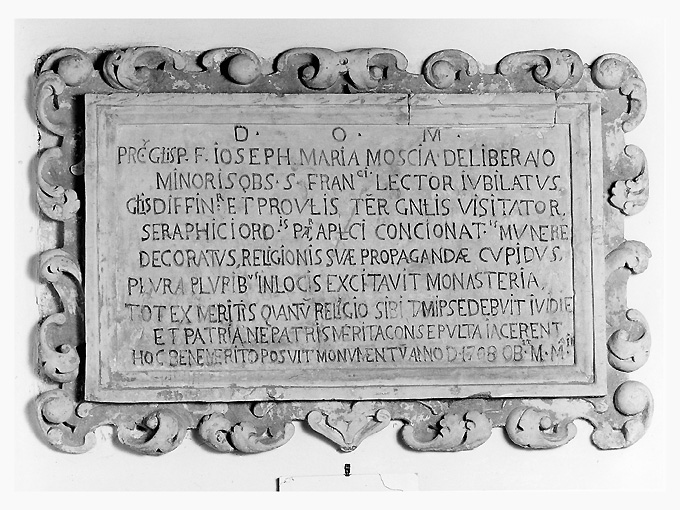 D · O · M ·
P. F. IOSEPH MARIA MOSCIA DELIBERATO
MINORIS OBS · S · FRAN.CI LECTOR IVBILATVS
GLIS DIFFIN.R ET PROVLIS TER GNLIS VISITATOR,
SERAPHICI ORD.IS APLCI CONCIONAT.IS MVNERE
DECORATVS, RELIGIONIS SVÆ PROPAGANDÆ CVPIDVS,
PLVRA PLVRIBVS IN LOCIS EXCITAVIT MONASTERIA,
TOT EX MERITIS QUANTV RELIGIO SIBI IPSE DEBVIT
ET PATRIA NE PATRIS MERITA CONSEPVLTA IACERENT
HOC BENEMERITO POSVIT MONVMENTV ANNO D. 1708 OB M · M